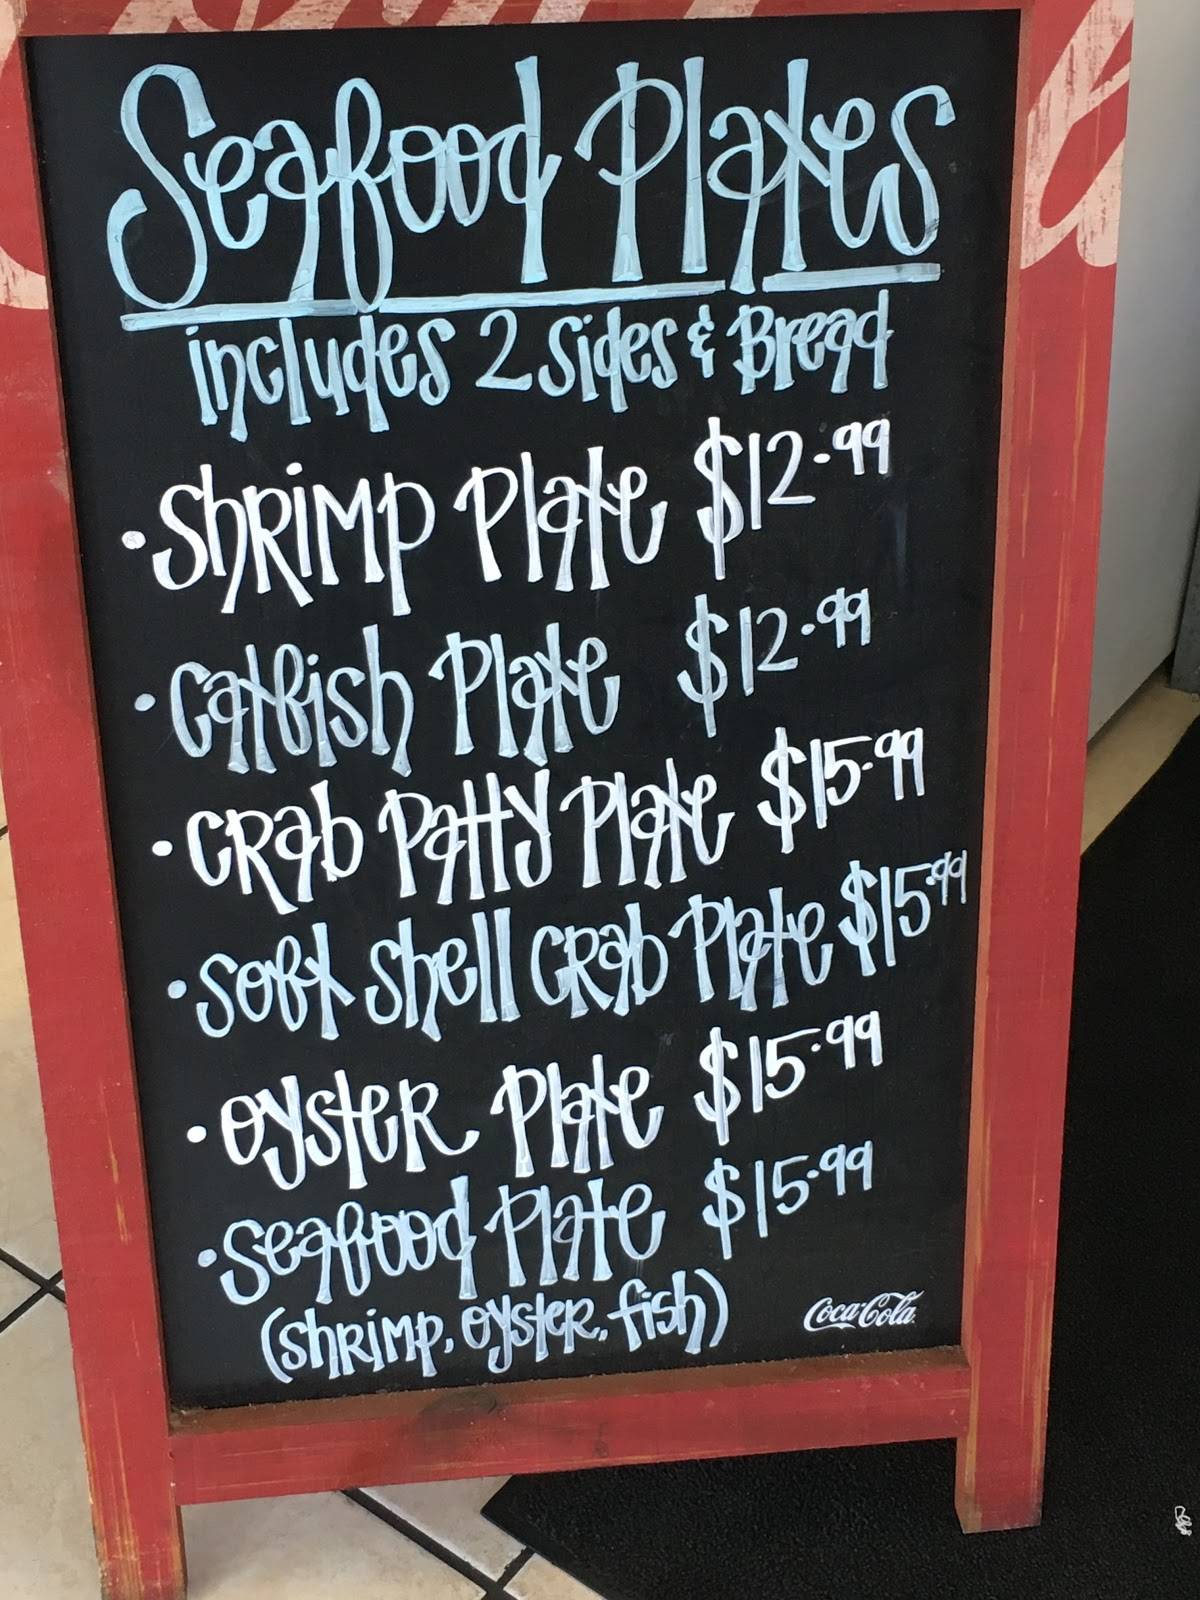 Seafood Plates
includes 2 sides & Bread
• Shrimp Plate $12.99
• Catfish Plate $12.99
• Crab Patty Plate $15.99
• Soft Shell Crab Plate $15.99
• Oyster Plate $15.99
• Seafood Plate $15.99
(shrimp, oyster, fish)
Coca-Cola